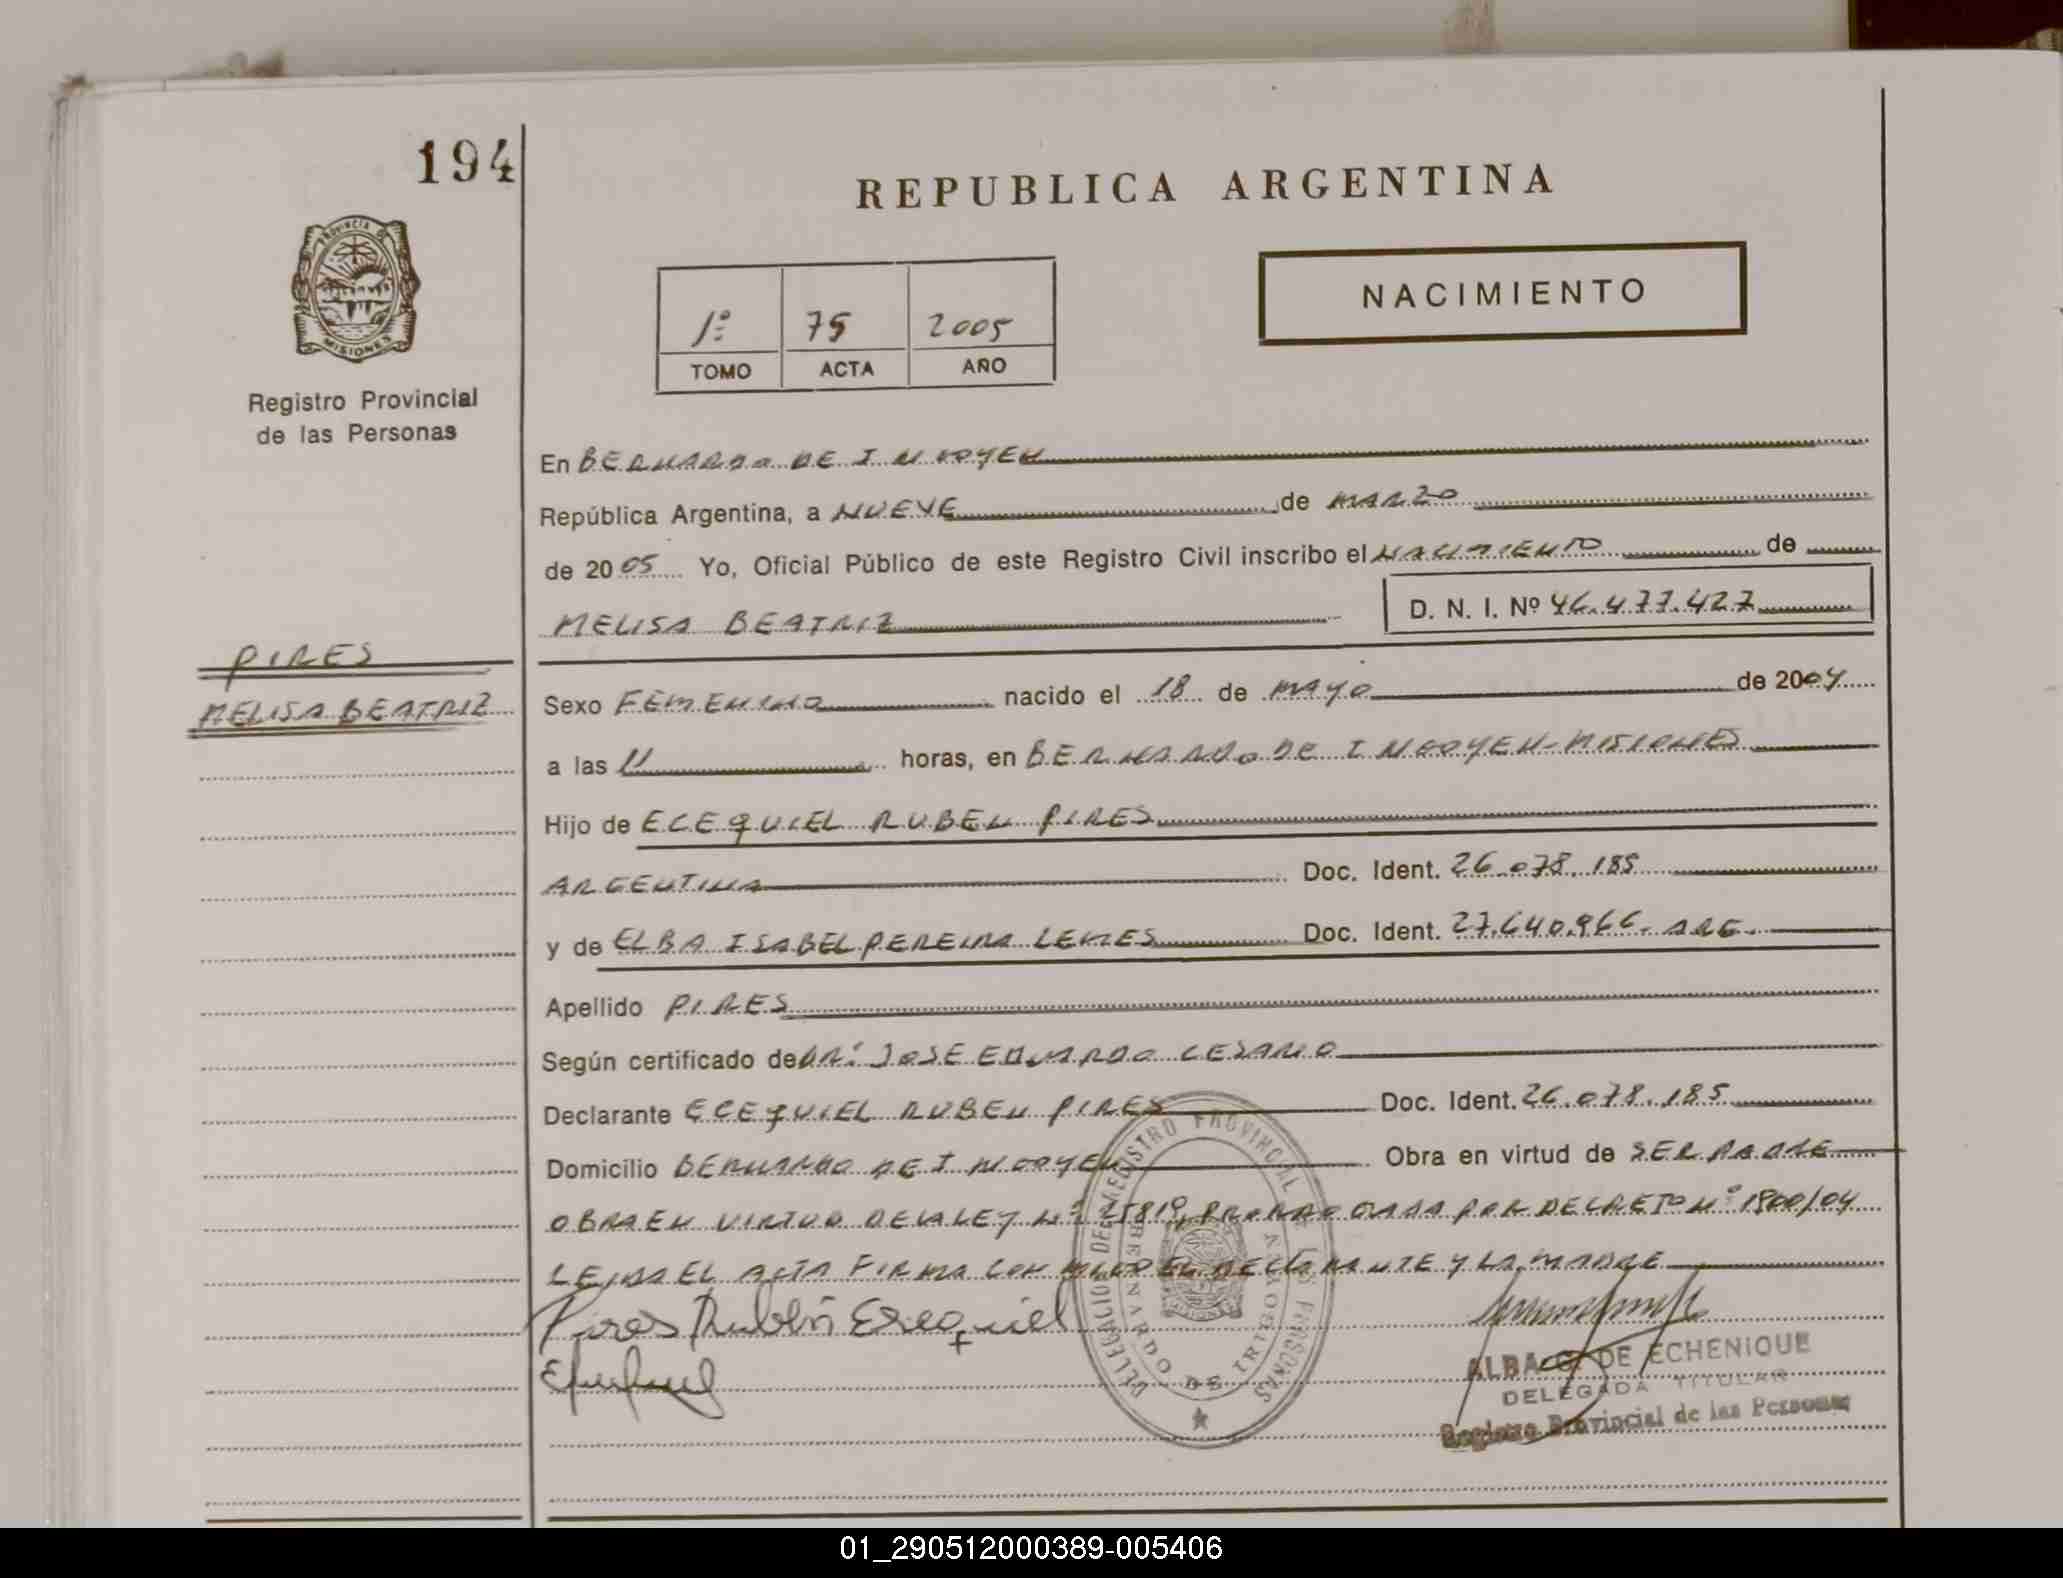 194
REPUBLICA ARGENTINA
PROVINCIA DE
MISIONES
Registro Provincial
de las Personas
NACIMIENTO
1º 75 2005
TOMO ACTA AÑO
En BERNARDO DE IRIGOYEN
República Argentina, a NUEVE de MARZO
de 2005 Yo, Oficial Público de este Registro Civil inscribo el NACIMIENTO de
MELISA BEATRIZ D. N. I. Nº 46.477.427
PIRES
MELISA BEATRIZ
Sexo FEMENINO nacido el 18 de MAYO de 2004
a las 11 horas, en BERNARDO DE IRIGOYEN-MISIONES
Hijo de ECEQUIEL RUBEN PIRES
ARGENTINA Doc. Ident. 26.078.185
y de ELBA ISABEL PEREIRA LEMES Doc. Ident. 27.640.966- ARG.
Apellido PIRES
Según certificado de DR: JOSE EDUARDO CESARIO
Declarante ECEQUIEL RUBEN PIRES Doc. Ident. 26.078.185
Domicilio BERNARDO DE IRIGOYEN Obra en virtud de SER PADRE
OBRA EN VIRTUD DE LA LEY Nº 25819, PRORROGADA POR DECRETO Nº 1800/04
LEIDA EL ACTA FIRMA CON MIGO EL DECLARANTE Y LA MADRE
Pires Rubén Ezequiel
DELEGACION DEL REGISTRO PROVINCIAL DE LAS PERSONAS
BERNARDO DE IRIGOYEN
ALBA G. DE ECHENIQUE
DELEGADA TITULAR
Registro Provincial de las Personas
01_290512000389-005406